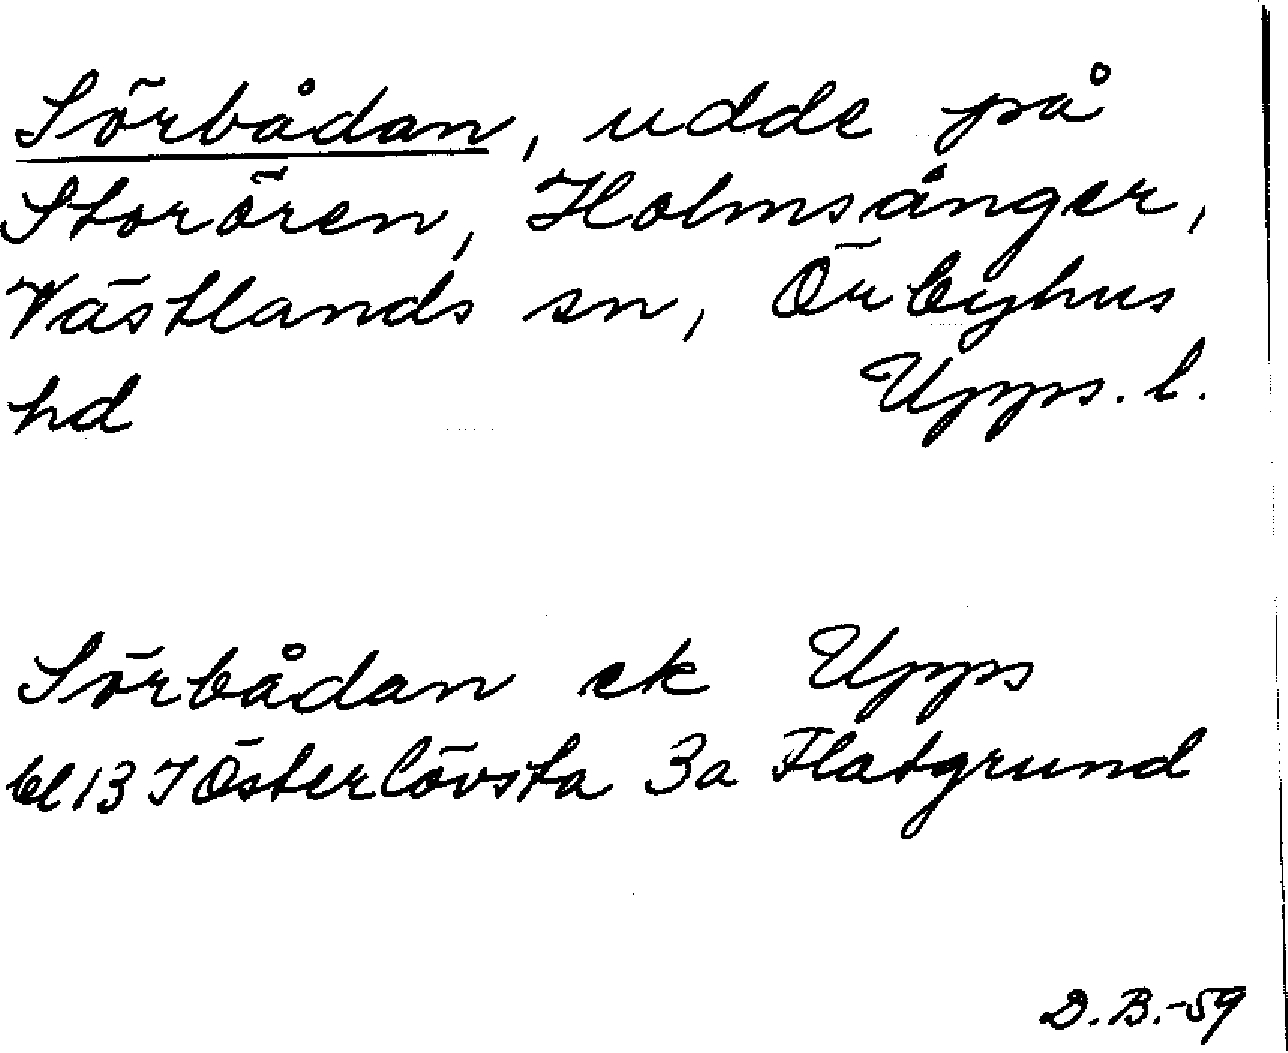 Sörbådan, udde på
Storören, Holmsånger,
Västlands sn, Örbyhus
hd Upps. l.
Sörbådan ek Upps
bl 13 I Österlövsta 3a Flatgrund
D.B.-59